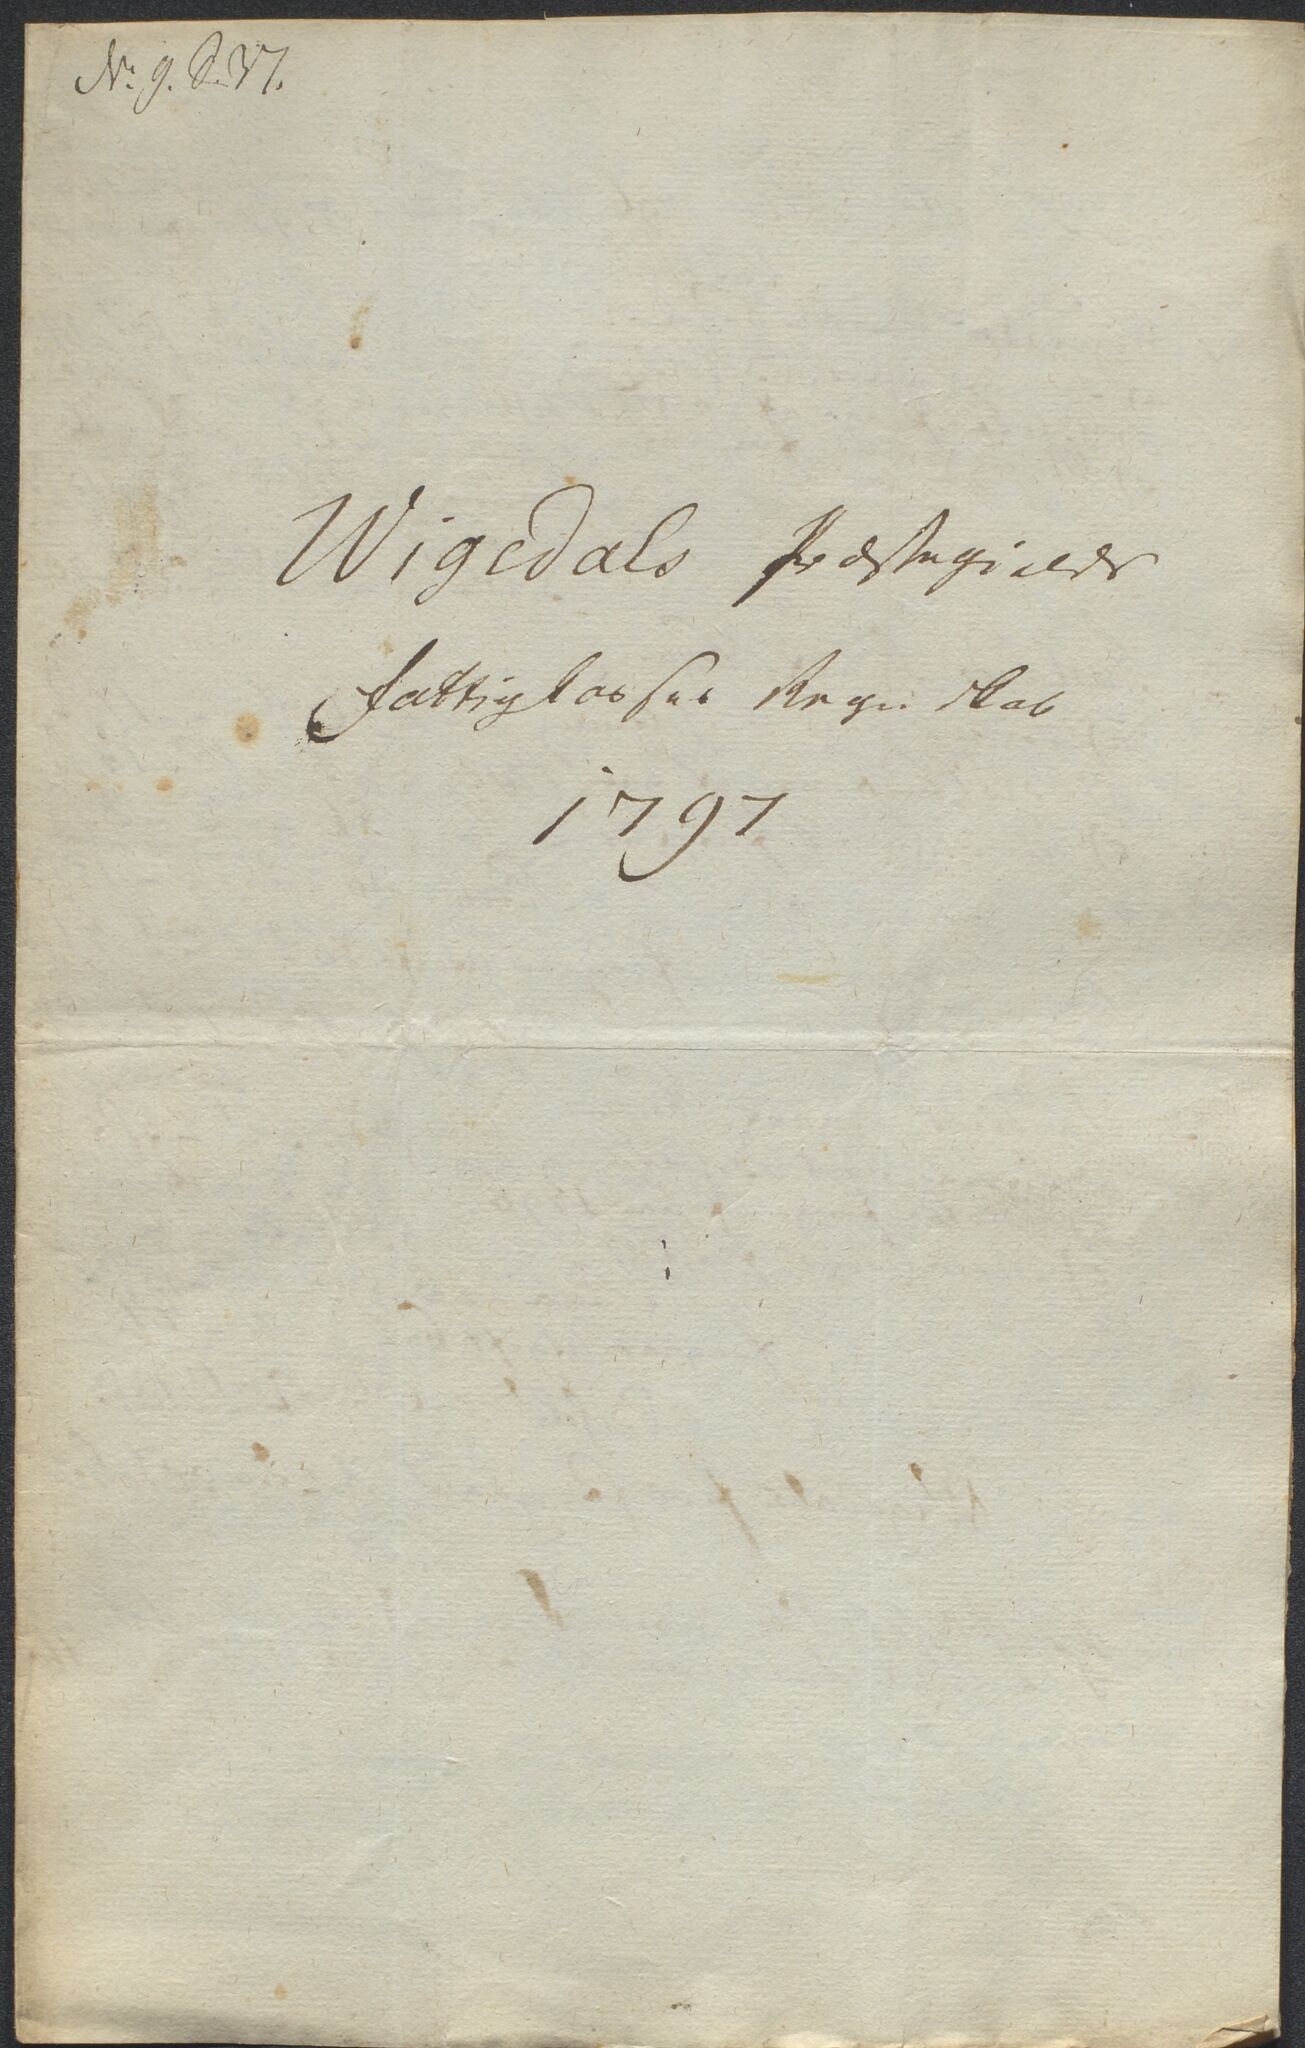 No. 9.
Wigedals Præstegields
fattigkasses Regnskab
1797